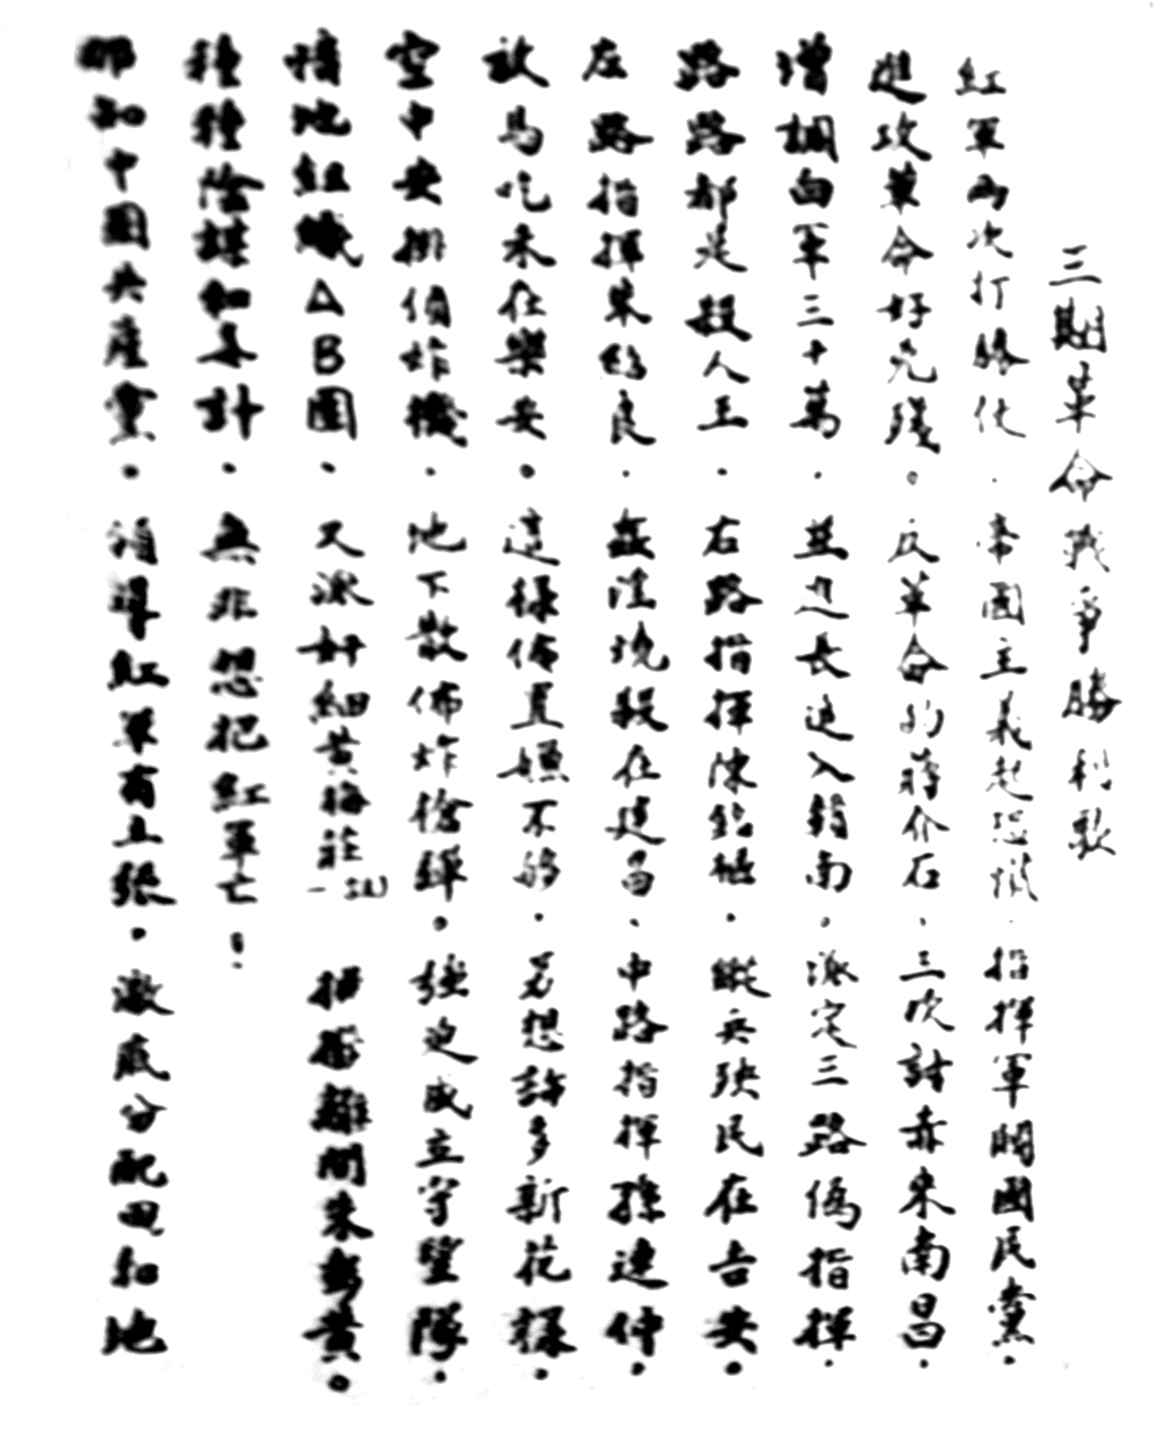 三期革命戰爭勝利歌
紅軍兩次打勝仗．帝國主義起恐慌．指揮軍閥國民黨．
進攻革命好兇殘。反革命的蔣介石．三次討赤來南昌．
增調白軍三十萬．並進長追入贛南．派定三路偽指揮．
路路都是殺人王．右路指揮陳銘樞．縱兵殃民在吉安．
左路指揮朱紹良．姦淫燒殺在建昌．中路指揮孫連仲．
放馬吃禾在樂安。這樣佈置嫌不夠．另想許多新花樣．
空中安排偵炸機．地下散佈炸槍彈．強迫成立守望隊．
猪地組織AB團．又派奸細黃梅莊 挑撥離間朱彭黃。
種種陰謀和毒計．無非想把紅軍亡！
那知中國共產黨．領導紅軍有主張．澈底分配田和地